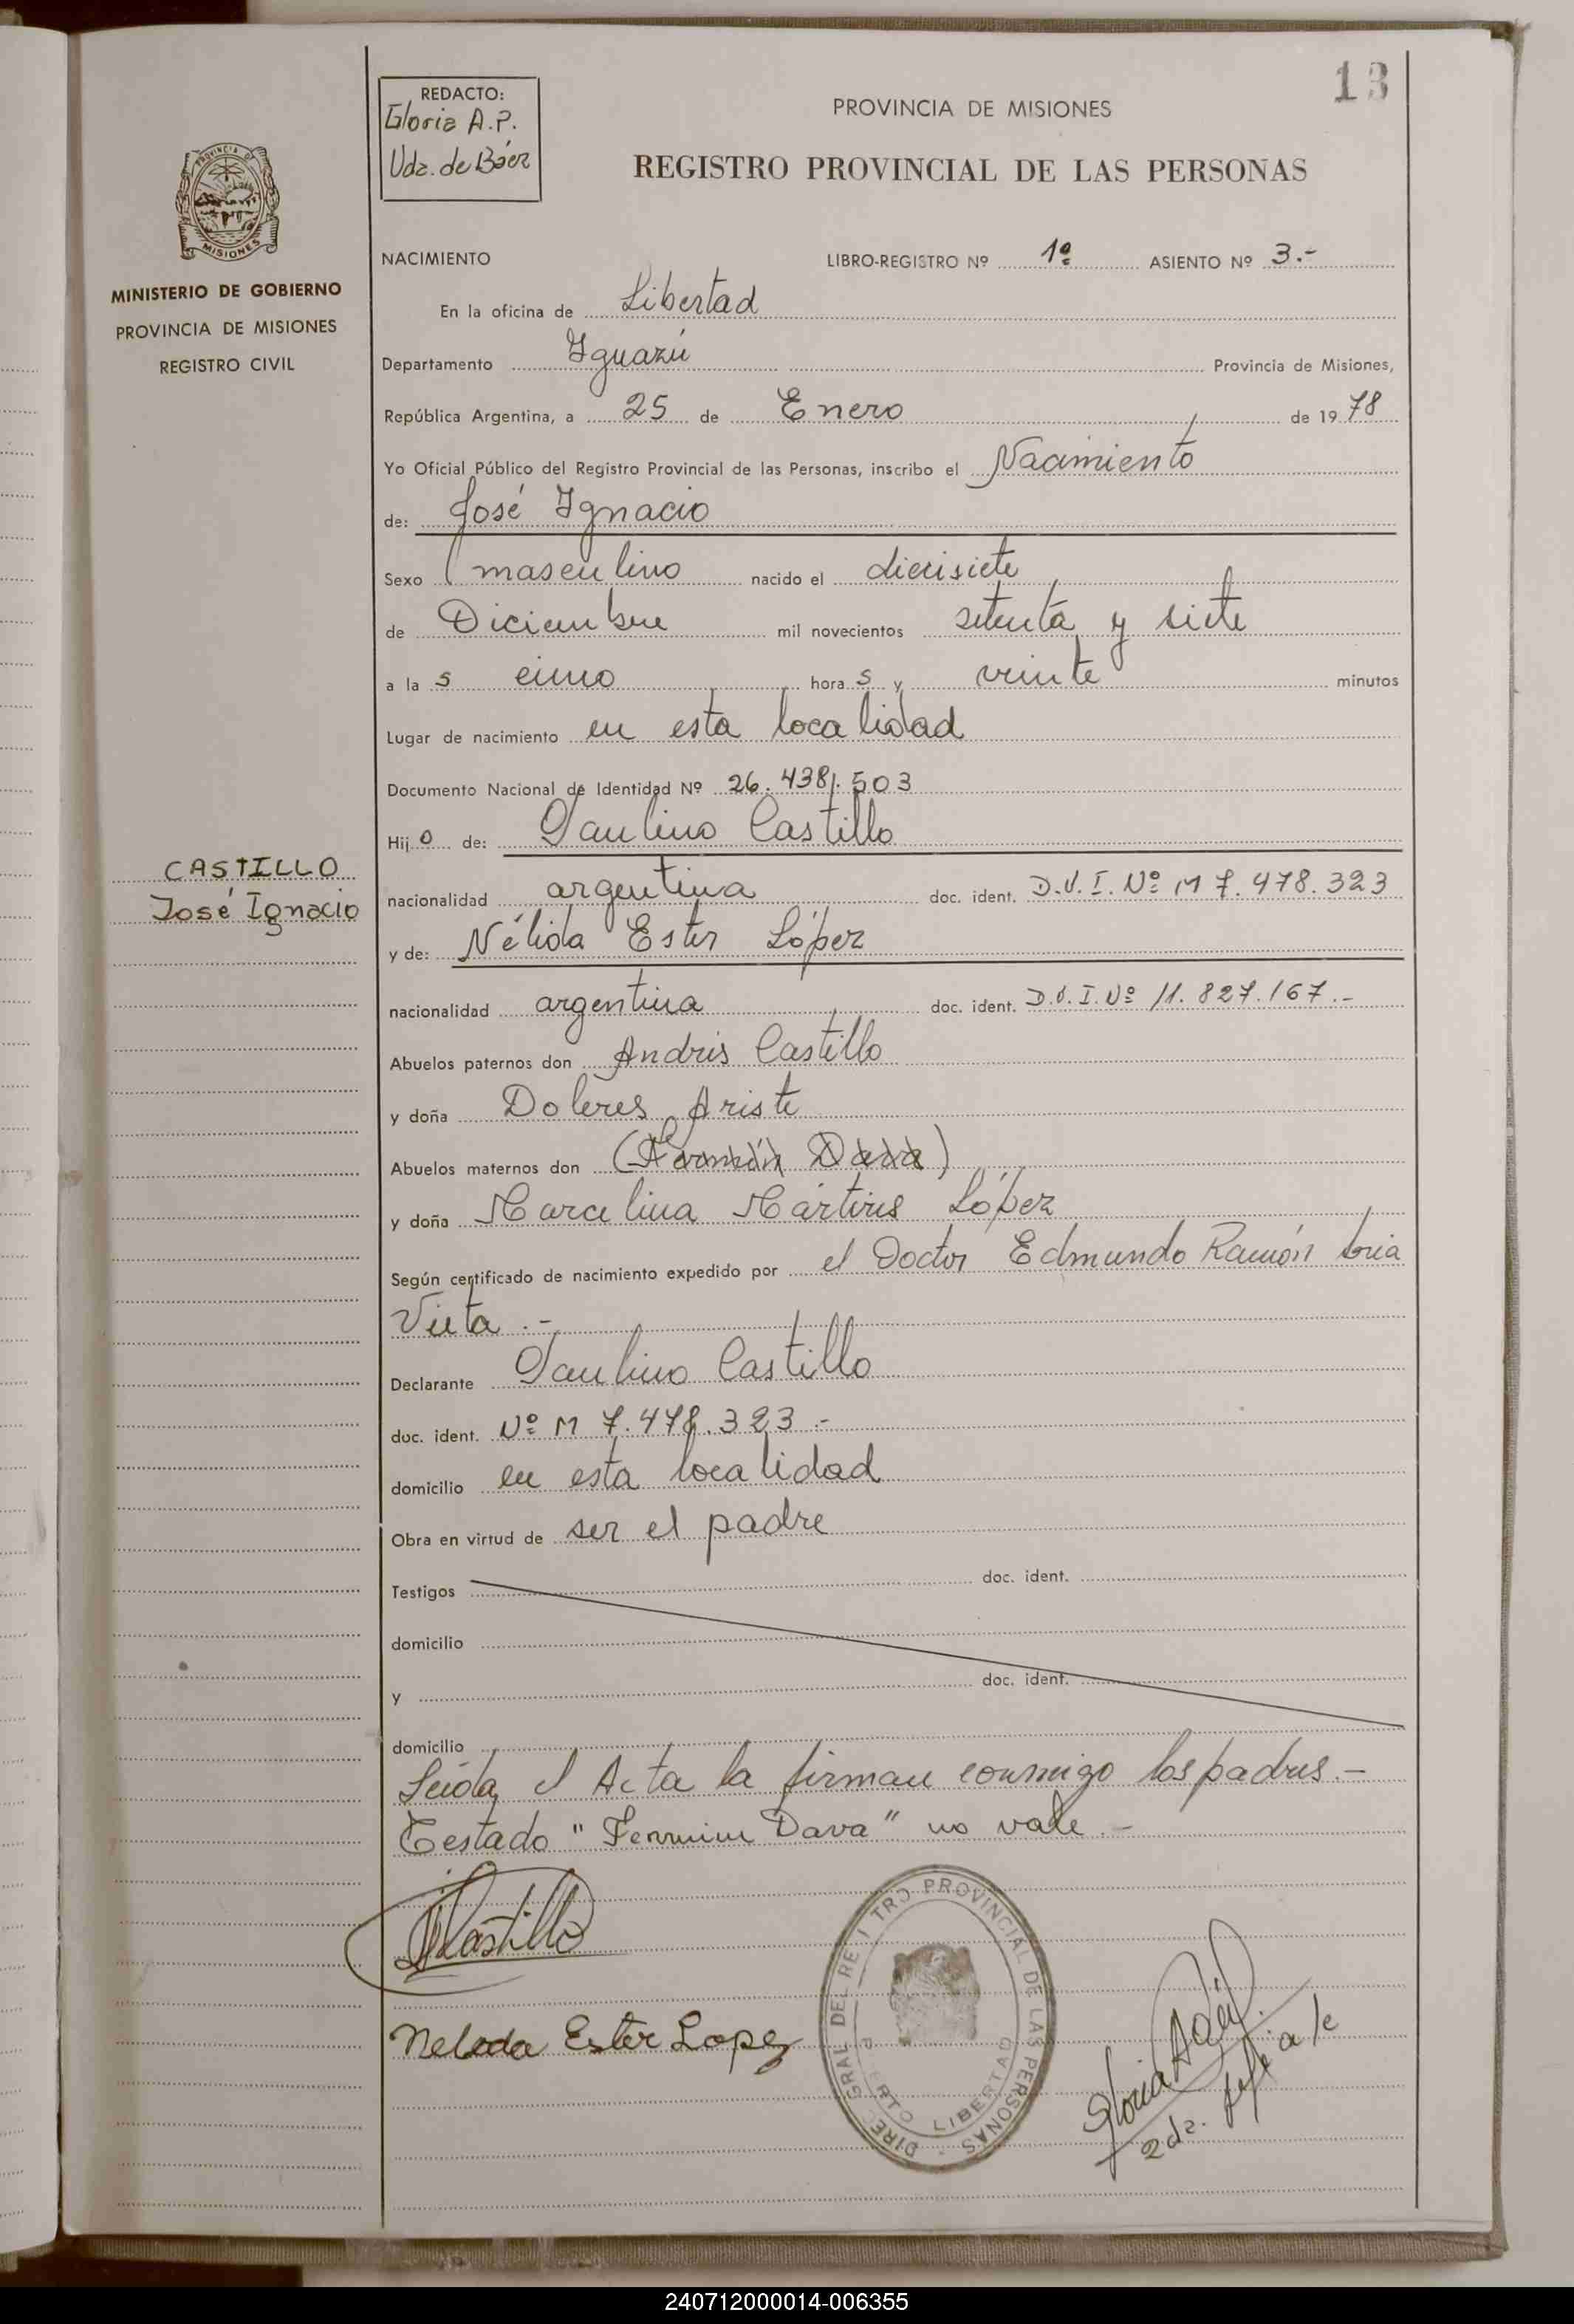 13
REDACTO:
Gloria A.P.
Vda. de Báez
PROVINCIA DE MISIONES
REGISTRO PROVINCIAL DE LAS PERSONAS
PROVINCIA D
MISIONES
MINISTERIO DE GOBIERNO
PROVINCIA DE MISIONES
REGISTRO CIVIL
NACIMIENTO LIBRO-REGISTRO Nº 1º ASIENTO Nº 3.-
En la oficina de Libertad
Departamento Iguazú Provincia de Misiones,
República Argentina, a 25 de Enero de 19 78
Yo Oficial Público del Registro Provincial de las Personas, inscribo el Nacimiento
de: José Ignacio
Sexo masculino nacido el diecisiete
de Diciembre mil novecientos setenta y siete
a la s cinco hora s y veinte minutos
Lugar de nacimiento en esta localidad
Documento Nacional de Identidad Nº 26.438.503
Hij o de: Paulino Castillo
CASTILLO
José Ignacio
nacionalidad argentina doc. ident. D.N.I. Nº M 7.478.323
y de: Nélida Ester López
nacionalidad argentina doc. ident. D.N.I. Nº 11.827.167.-
Abuelos paternos don Andrés Castillo
y doña Dolores Ariste
Abuelos maternos don (Fermín Dava)
y doña Marcelina Mártires López
Según certificado de nacimiento expedido por el Doctor Edmundo Ramón Soria
Vieta.-
Declarante Paulino Castillo
doc. ident. Nº M 7.478.323.-
domicilio en esta localidad
Obra en virtud de ser el padre
Testigos doc. ident.
domicilio
y doc. ident.
domicilio
Leída el Acta la firman conmigo los padres.-
Testado "Fermin Dava" no vale.-
Castillo
Nelida Ester Lopez
DIREC GRAL DEL RE I TRO PROVINCIAL DE LAS PERSONAS
P ERTO LIBERTAD
Gloria
2da. Jefe a/c
240712000014-006355